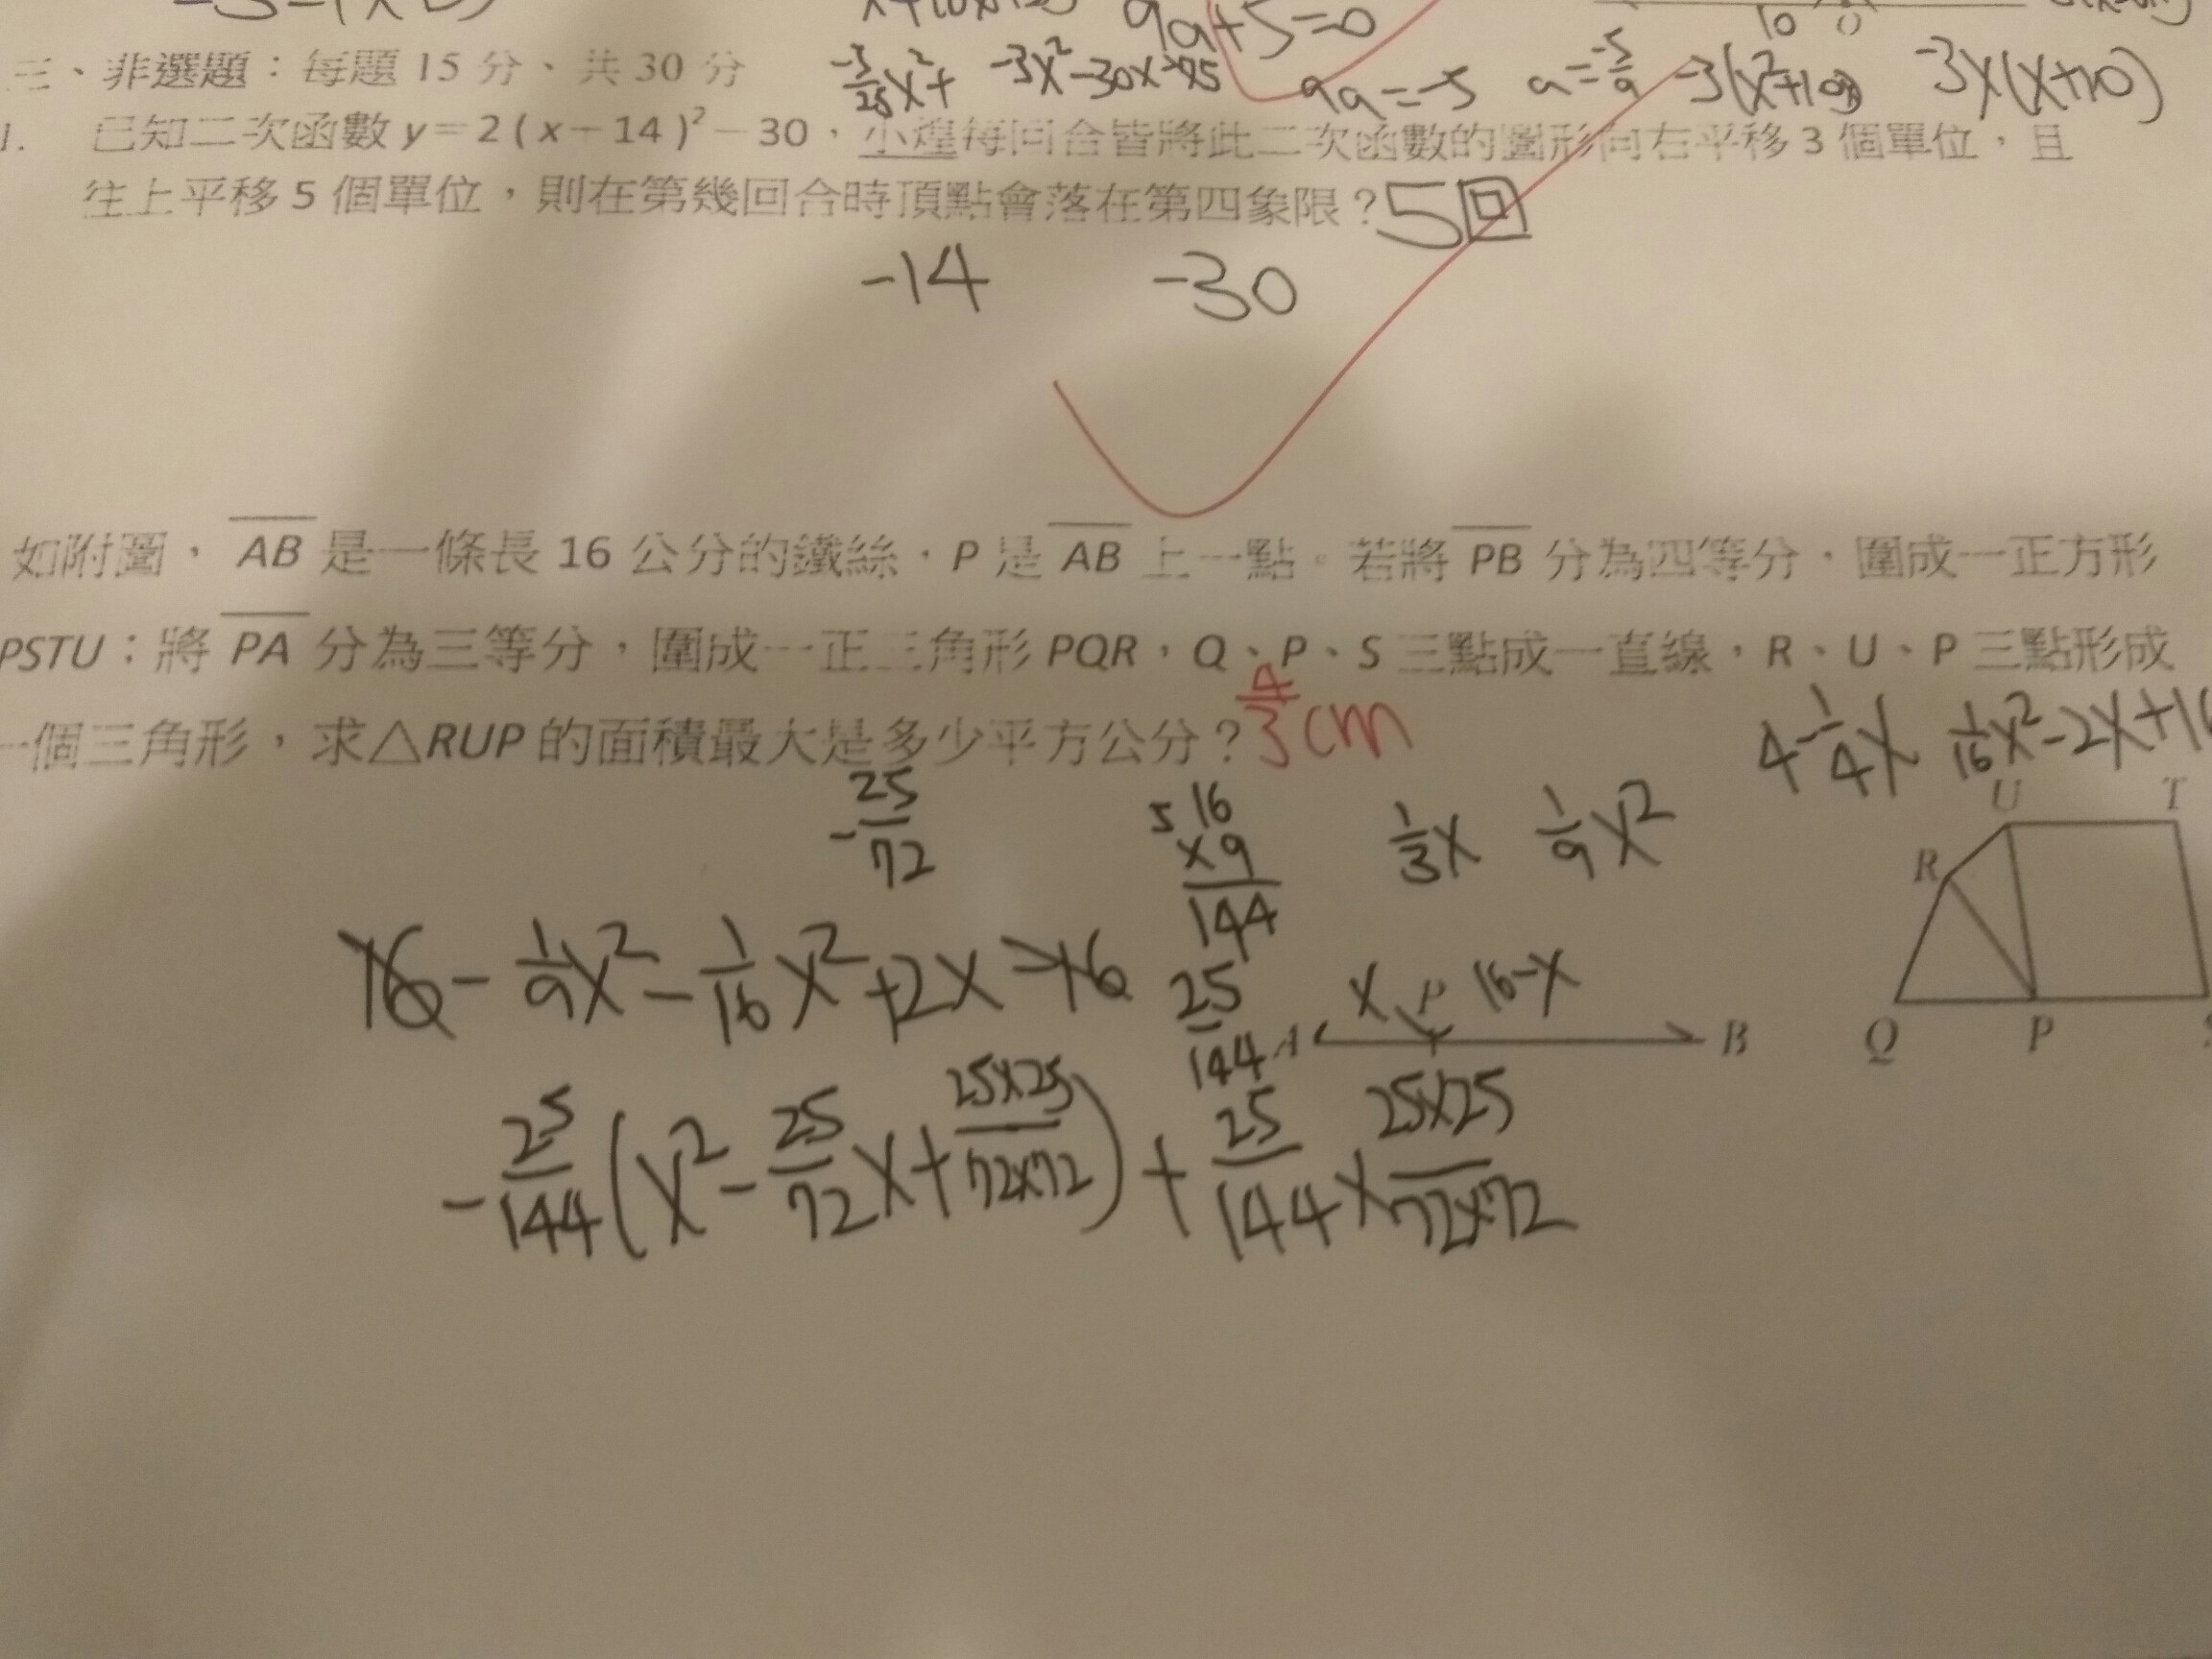 9a+5=0
10
三、非選題：每題 15 分、共 30 分
-3x²-30x
9a=-5
a=-5/9
-3x(x+10)
1. 已知二次函數 y=2(x-14)²-30，小煌每回合皆將此二次函數的圖形向右平移 3 個單位，且
往上平移 5 個單位，則在第幾回合時頂點會落在第四象限？5回
-14 -30
如附圖，AB 是一條長 16 公分的鐵絲，P 是 AB 上一點。若將 PB 分為四等分，圍成一正方形
PSTU；將 PA 分為三等分，圍成一正三角形 PQR，Q、P、S 三點成一直線，R、U、P 三點形成
一個三角形，求△RUP 的面積最大是多少平方公分？4/3 cm
4-1/4x 1/16x²-2x+16
-25/72
5 16
×9
144
1/3x 1/9x²
U T
R
16-1/9x²-1/16x²+2x-16
25/144
x P 16-x
A B
Q P
-25/144(x²-25/72x+25×25/72×72)+25/144×25×25/72×72